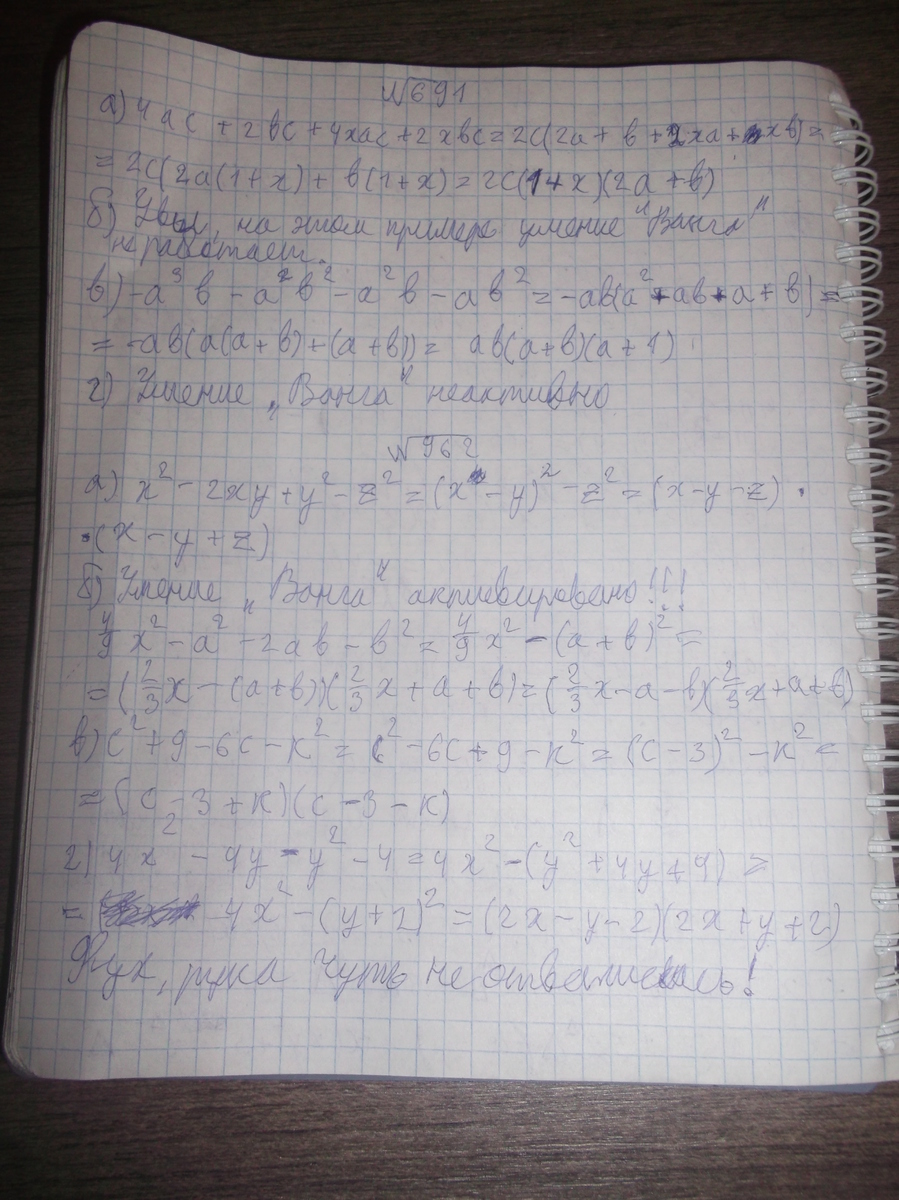 №691
а) 4ac + 2bc + 4xac + 2xbc = 2c(2a + b + 2xa + xb) =
= 2c(2a(1+x) + b(1+x) = 2c(1+x)(2a+b)
б) Увы, на этом примере умение "Ванга"
не работает.
в) -a³b - a²b² - a²b - ab² = -ab(a² + ab + a + b) =
= -ab(a(a+b) + (a+b)) = ab(a+b)(a+1)
г) Умение "Ванга" неактивно
№962
а) x² - 2xy + y² - z² = (x - y)² - z² = (x-y-z) ·
·(x-y+z)
б) Умение "Ванга" активировано!!!
4/9 x² - a² - 2ab - b² = 4/9 x² - (a+b)² =
= (2/3 x - (a+b))(2/3 x + a + b) = (2/3 x - a - b)(2/3 x + a + b)
в) c² + 9 - 6c - k² = c² - 6c + 9 - k² = (c-3)² - k² =
= (c-3+k)(c-3-k)
г) 4x² - 4y - y² - 4 = 4x² - (y² + 4y + 4) =
= 4x² - (y+2)² = (2x-y-2)(2x+y+2)
Фух, рука чуть не отвалилась!